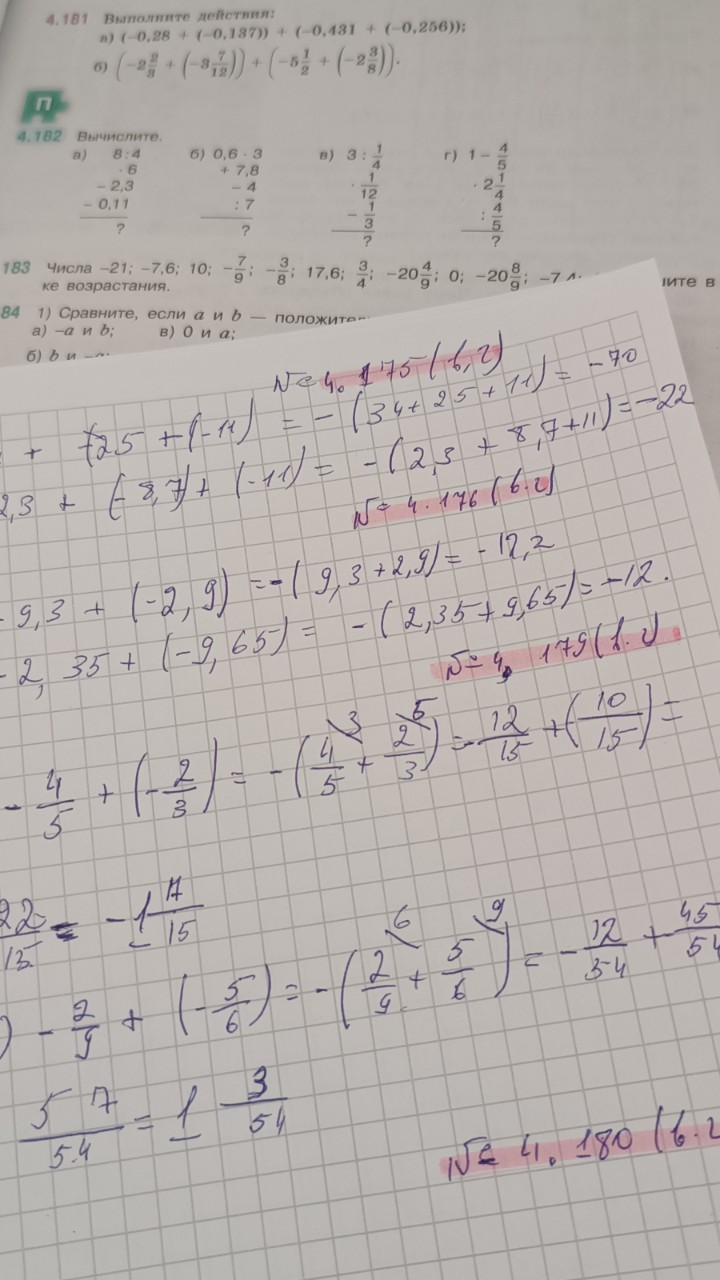 4.181 Выполните действия:
а) (−0,28 + (−0,137)) + (−0,431 + (−0,256));
б) (−2 2/3 + (−3 7/12)) + (−5 1/2 + (−2 3/8)).
П
4.182 Вычислите.
а) 8 : 4 б) 0,6 · 3 в) 3 : 1/4 г) 1 − 4/5
· 6 + 7,8 · 1/12 · 2 1/4
− 2,3 − 4 − 1/3 : 4/5
− 0,11 : 7 ? ?
? ?
183 Числа −21; −7,6; 10; −7/9; −3/8; 17,6; 3/4; −20 4/9; 0; −20 8/9; −7,4; в
ке возрастания.
84 1) Сравните, если a и b —
а) −a и b; в) 0 и a;
б) b и −a;
№ 4.175 (в,г)
+ (25 + (-11) = - (34 + 25 + 11) = -70
2,3 + (-8,7) + (-11) = -(2,3 + 8,7 + 11) = -22
№ 4.176 (в.г)
- 9,3 + (-2,9) = -(9,3 + 2,9) = -12,2
- 2,35 + (-9,65) = -(2,35 + 9,65) = -12.
№ 4, 179 (в.г)
- 4/5 + (- 2/3) = - (4/5 3 + 2/3 5) = - 12/15 + (10/15) =
22/15 = -1 7/15
) - 2/9 + (- 5/6) = - (2/9 6 + 5/6 9) = - 12/54 + 45/54
57/54 = 1 3/54
№ 4.180 (в.г